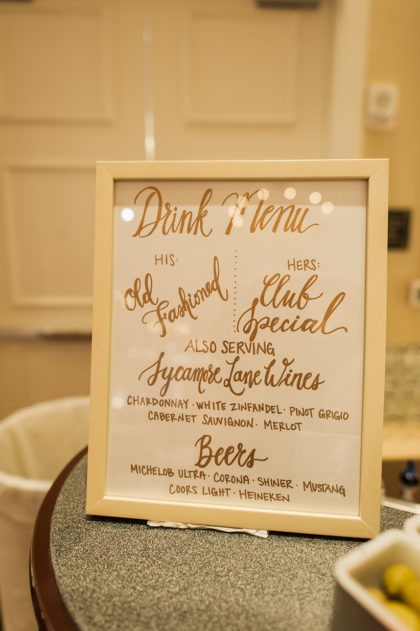 Drink Menu
HIS:
Old
Fashioned
HERS:
Club
Special
ALSO SERVING
Sycamore Lane Wines
CHARDONNAY · WHITE ZINFANDEL · PINOT GRIGIO
CABERNET SAUVIGNON · MERLOT
Beers
MICHELOB ULTRA · CORONA · SHINER · MUSTANG
COORS LIGHT · HEINEKEN